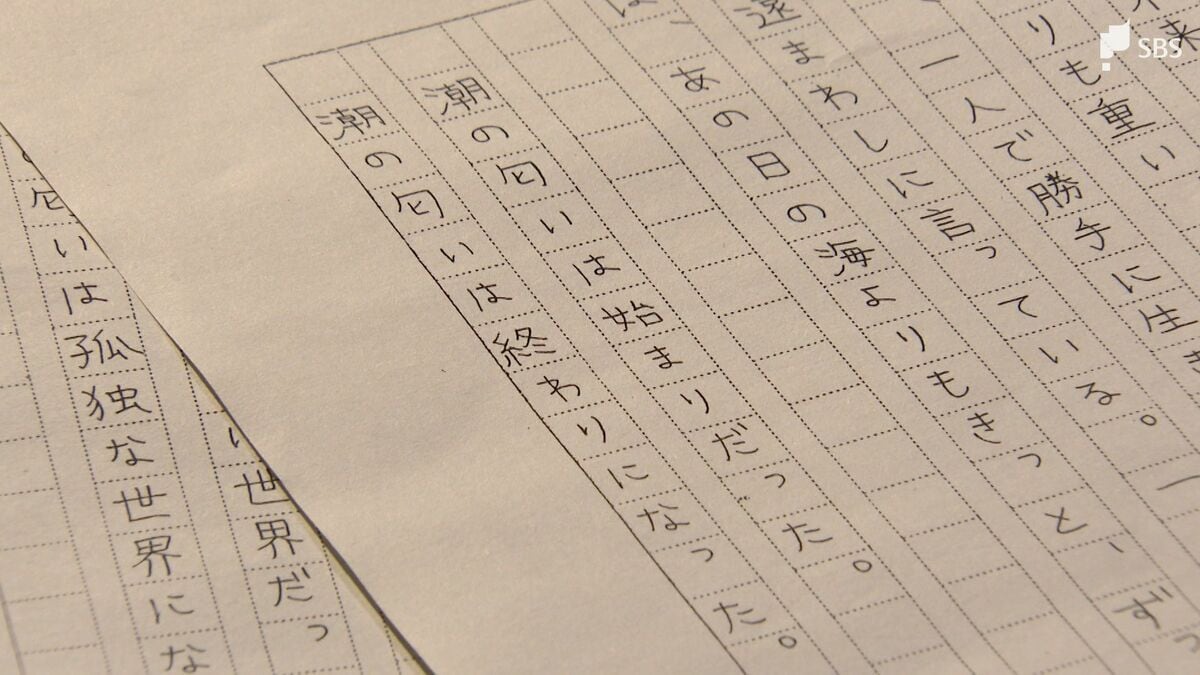 来
りも重い
一人で勝手に生き
遠まわしに言っている。一
は、あの日の海よりもきっと、ずっ
潮の匂いは始まりだった。
潮の匂いは終わりになった。
い世界だっ
匂いは孤独な世界にな
SBS